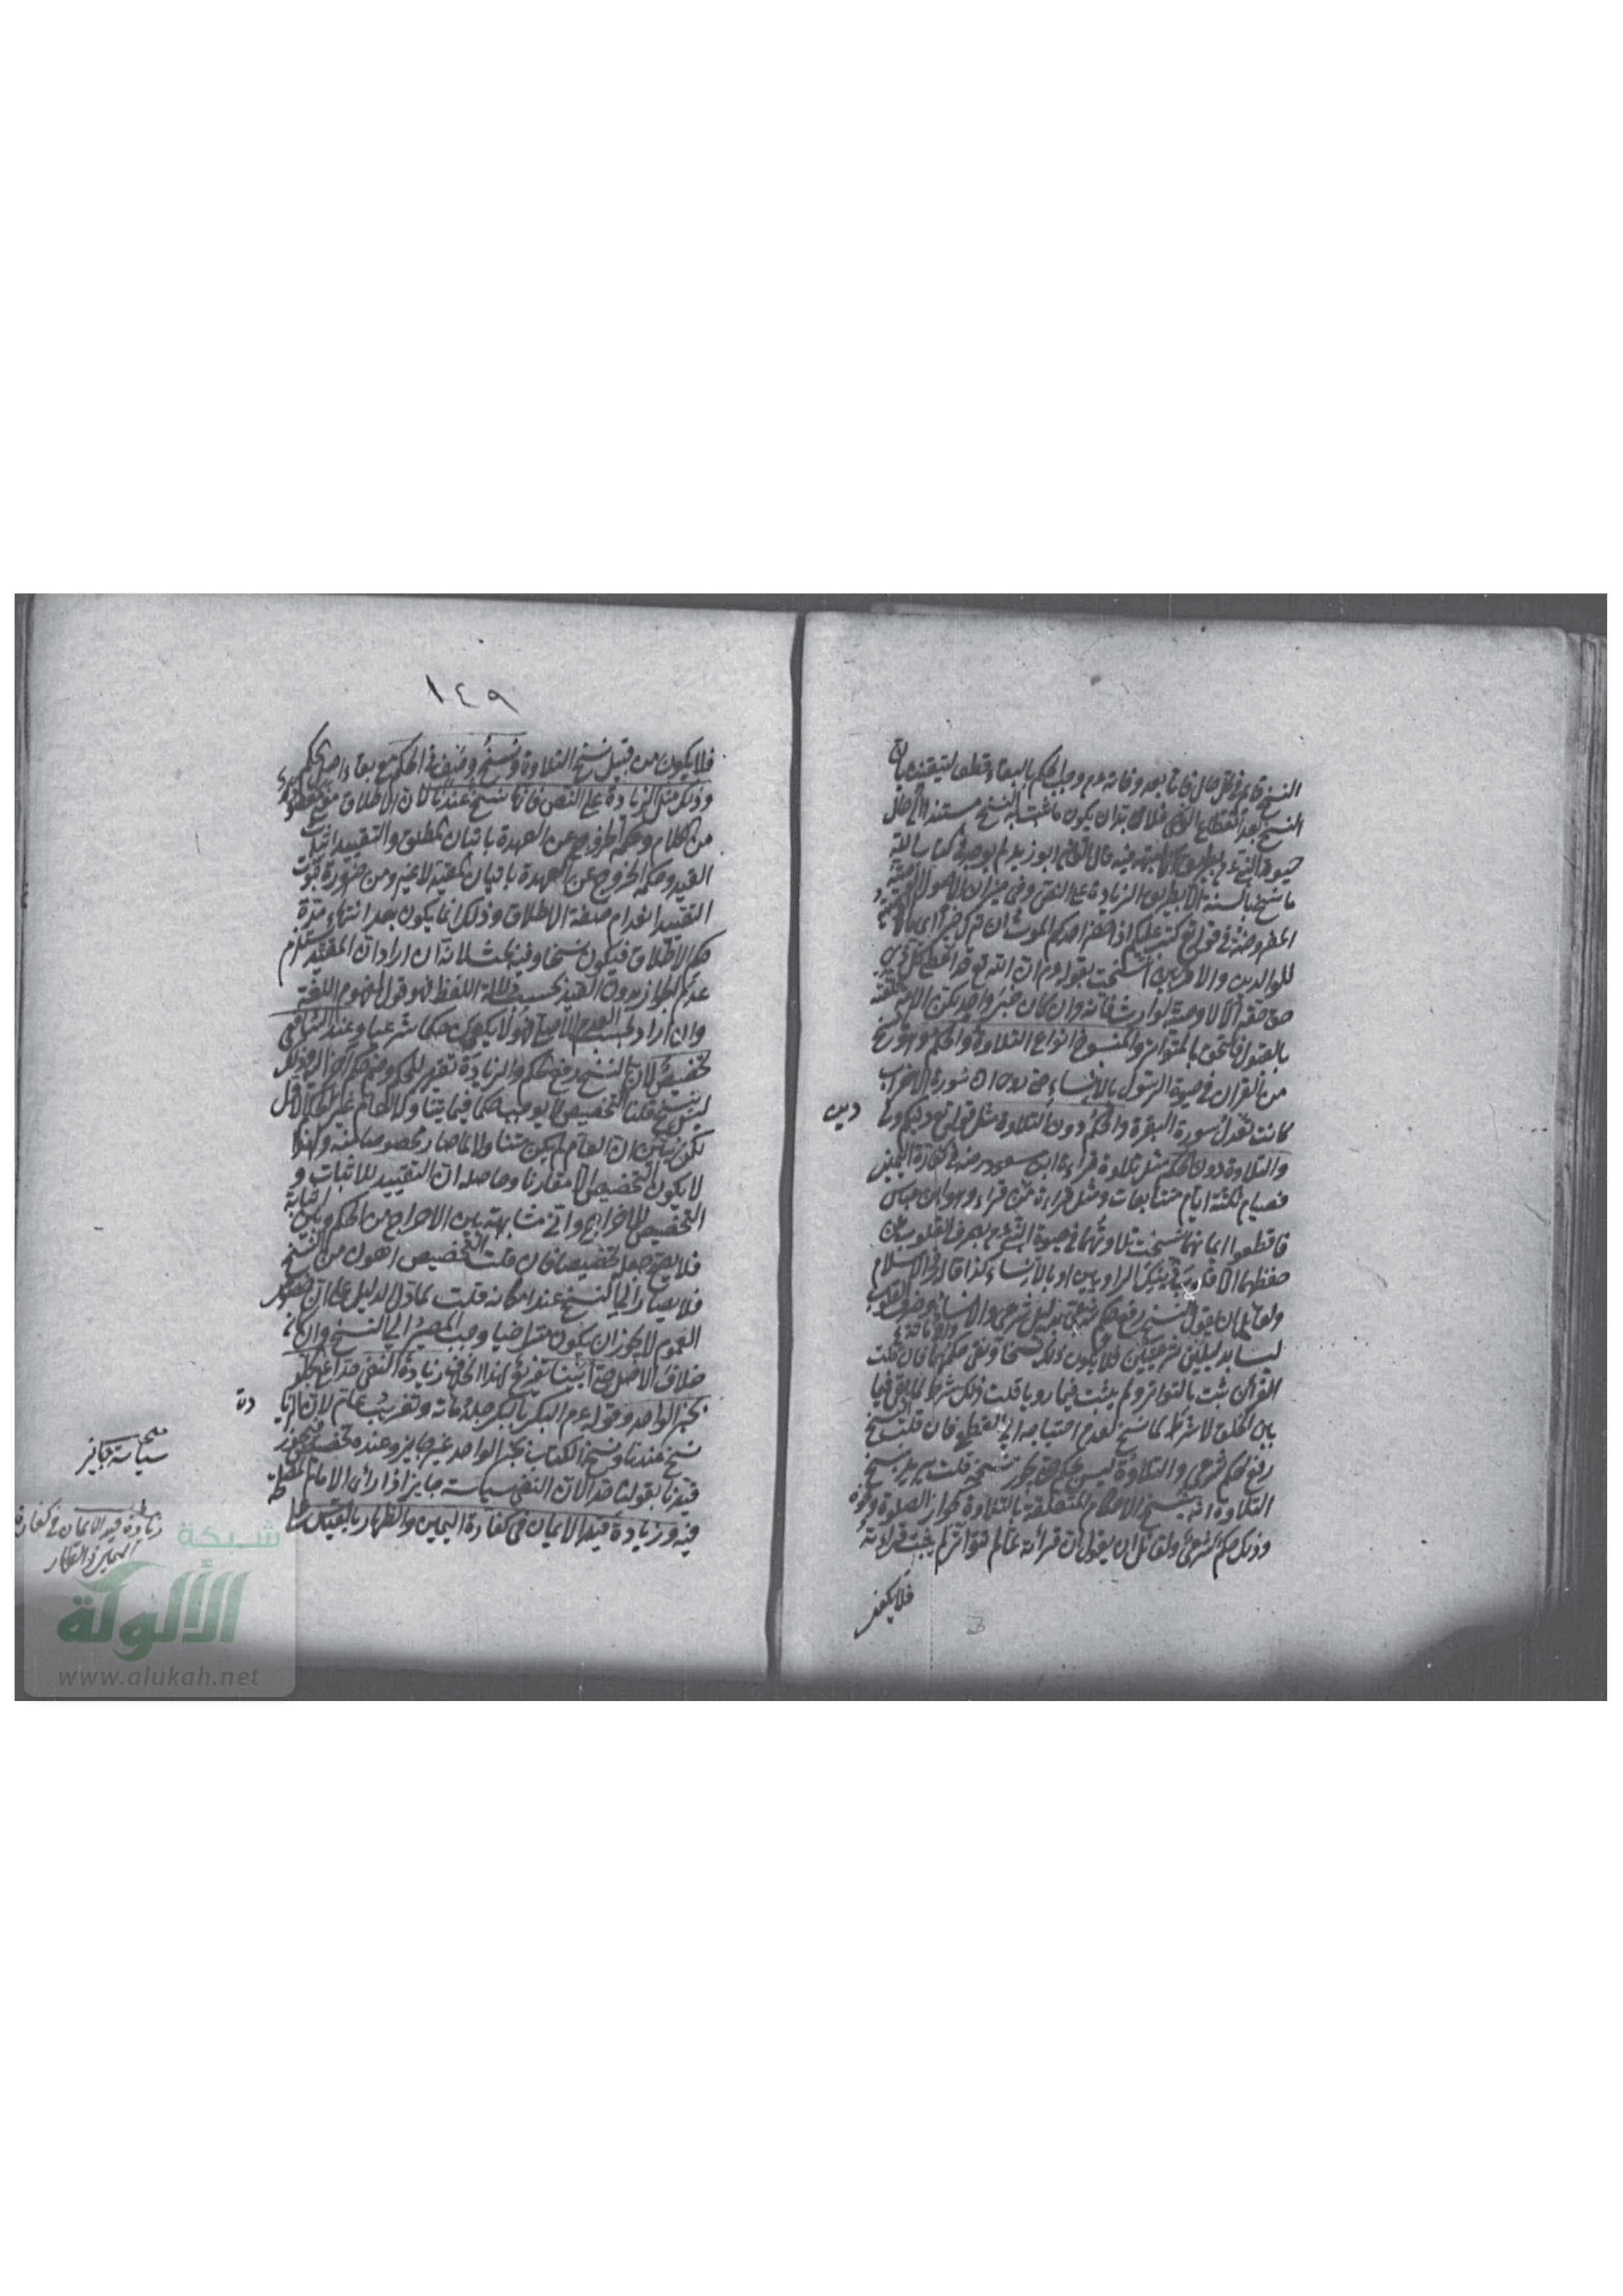 النسخ قائم في كل حال فاما بعد وفاته عم وجب الحكم بالبقاء قطعا لتيقننا بان
النسخ بعد انقطاع الوحي فلا بد ان يكون ما ثبت به النسخ مستندا الى حال
حيوة النبي عم بطريق لا شبهة فيه قال القاضي ابو زيد لم يوجد في كتاب الله
ما نسخ بالسنة الا بطريق الزيادة على النص وفي ميزان الاصول الوصية
المفروضة في قوله تع كتب عليكم اذا حضر احدكم الموت ان ترك خيرا اي مالا
للوالدين والاقربين انتسخت بقوله عم ان الله تع قد اعطى كل ذي
حق حقه الا لا وصية لوارث فانه وان كان خبر واحد لكن الامة تلقته
بالقبول فالتحق بالمتواتر والمنسوخ انواع التلاوة والحكم وهو نسخ
من القرآن في حيوة الرسول بالانساء حتى روي ان سورة الاحزاب
كانت تعدل سورة البقرة والحكم دون التلاوة مثل قوله تع لكم دينكم ولي
دين
والتلاوة دون الحكم مثل تلاوة قراءة ابن مسعود رضه في كفارة اليمين
فصيام ثلثة ايام متتابعات ومثل قراءة من قراء وهو ابن عباس
فاقطعوا ايمانهما نسخت تلاوتهما في حيوة النبي عم بصرف القلوب عن
حفظهما الا قلوب هذين الراويين او بالانساء كذا قال فخر الاسلام
ولقائل ان يقول النسخ رفع حكم شرعي بدليل شرعي والانساء وصرف القلوب
ليسا بدليلين شرعيين فلا يكون ذلك نسخا وبقي حكمهما فان قلت
القرآن ثبت بالتواتر ولم يثبت فيما رويا قلت ذلك شرط لما بقي فيما
بين الخلق لا شرط لما نسخ لعدم احتياجه الى القطع فان قلت النسخ
رفع حكم شرعي والتلاوة ليس بحكم حتى يجوز نسخه قلت يريد بنسخ
التلاوة انه نسخ الاحكام المتعلقة بالتلاوة كجواز الصلوة ونحوه
وذلك حكم شرعي ولقائل ان يقول ان قرآنه لما لم تتواتر لم يثبت قرآنه
فلا يكون
١٤٩
فلا يكون من قبيل نسخ التلاوة ونسخ وصف في الحكم مع بقاء اصل الحكم
وذلك مثل الزيادة على النص فانها نسخ عندنا لان الاطلاق معنى مقصود
من الكلام وحكمه الخروج عن العهدة باتيان المطلق والتقييد اثبات
القيد وحكمه الخروج عن العهدة باتيان المقيد لا غير ومن ضرورة ثبوت
التقييد انعدام صفة الاطلاق وذلك انما يكون بعد انتهاء مدة
حكم الاطلاق فيكون نسخا وفيه بحث لانه ان اراد ان المقيد يستلزم
عدم الجواز بدون القيد بحسب دلالة اللفظ فهو قول بمفهوم اللقب
وان اراد بحسب العدم الاصلي فهو لا يكون حكما شرعيا وعند الشافعي
تخصيص لان النسخ رفع الحكم والزيادة تقرير الحكم وضم حكم اخر اليه وذلك
ليس بنسخ قلنا التخصيص لا يوجب حكما فيما يتناوله العام غير الحكم الاول
لكن يبين ان العام لم يكن متناولا لما صار مخصوصا منه ولهذا
لا يكون التخصيص الا مقارنا وحاصله ان التقييد للاثبات و
التخصيص للاخراج واي مشابهة بين الاخراج من الحكم وبين اثباته
فلا يصح جعله تخصيصا فان قلت التخصيص اهون من النسخ
فلا يصار الى النسخ عند امكانه قلت لما دل الدليل على ان
العموم لا يجوز ان يكون متراخيا وجب المصير الى النسخ وان كان
خلاف الاصل حتى اثبتنا تفريع لهذا الخلاف زيادة النفي حدا على الجلد
بخبر الواحد وقوله عم البكر بالبكر جلد مائة وتغريب عام لان الزيادة
نسخ عندنا ونسخ الكتاب بخبر الواحد غير جايز وعنده تخصيص فيجوز
قيدنا بقولنا حدا لان النفي سياسة جايز اذا رأى الامام المصلحة
فيه وزيادة قيد الايمان في كفارة اليمين والظهار بالقياس على
سياسة جايز
زيادة قيد الايمان في كفارة
اليمين والظهار
شبكة
الألوكة
www.alukah.net